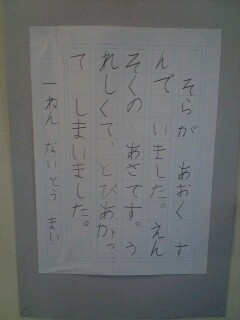 そらが あおく す
んで いました。えん
そくの あさです。う
れしくて、とびあがっ
て しまいました。
一ねん ないとう まい